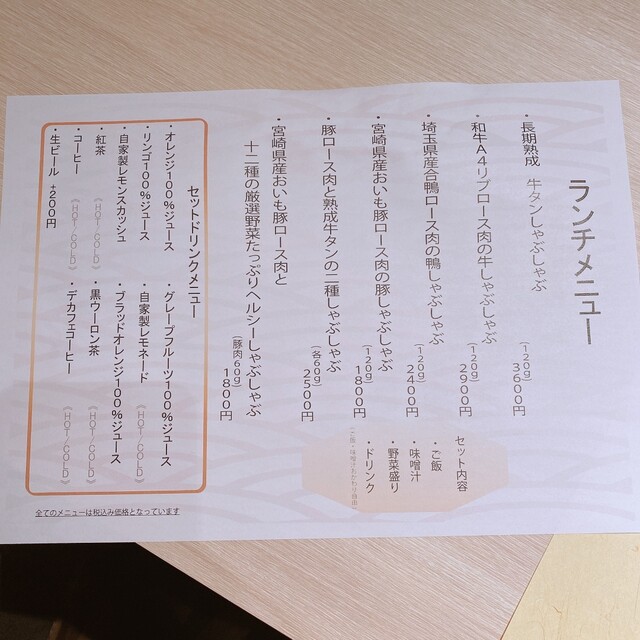 ランチメニュー
・長期熟成 牛タンしゃぶしゃぶ
(120g)
3600円
・和牛A4リブロース肉の牛しゃぶしゃぶ
(120g)
2900円
・埼玉県産合鴨ロース肉の鴨しゃぶしゃぶ
(120g)
2400円
・宮崎県産おいも豚ロース肉の豚しゃぶしゃぶ
(120g)
1800円
・豚ロース肉と熟成牛タンの二種しゃぶしゃぶ
(各60g)
2500円
・宮崎県産おいも豚ロース肉と
十二種の厳選野菜たっぷりヘルシーしゃぶしゃぶ
(豚肉60g)
1800円
セット内容
・ご飯
・味噌汁
・野菜盛り
・ドリンク
セットドリンクメニュー
・オレンジ100%ジュース
・グレープフルーツ100%ジュース
・リンゴ100%ジュース
・自家製レモネード
《HOT/COLD》
・自家製レモンスカッシュ
・ブラッドオレンジ100%ジュース
・紅茶
《HOT/COLD》
・黒ウーロン茶
《HOT/COLD》
・コーヒー
《HOT/COLD》
・デカフェコーヒー
《HOT/COLD》
・生ビール +200円
全てのメニューは税込み価格となっています